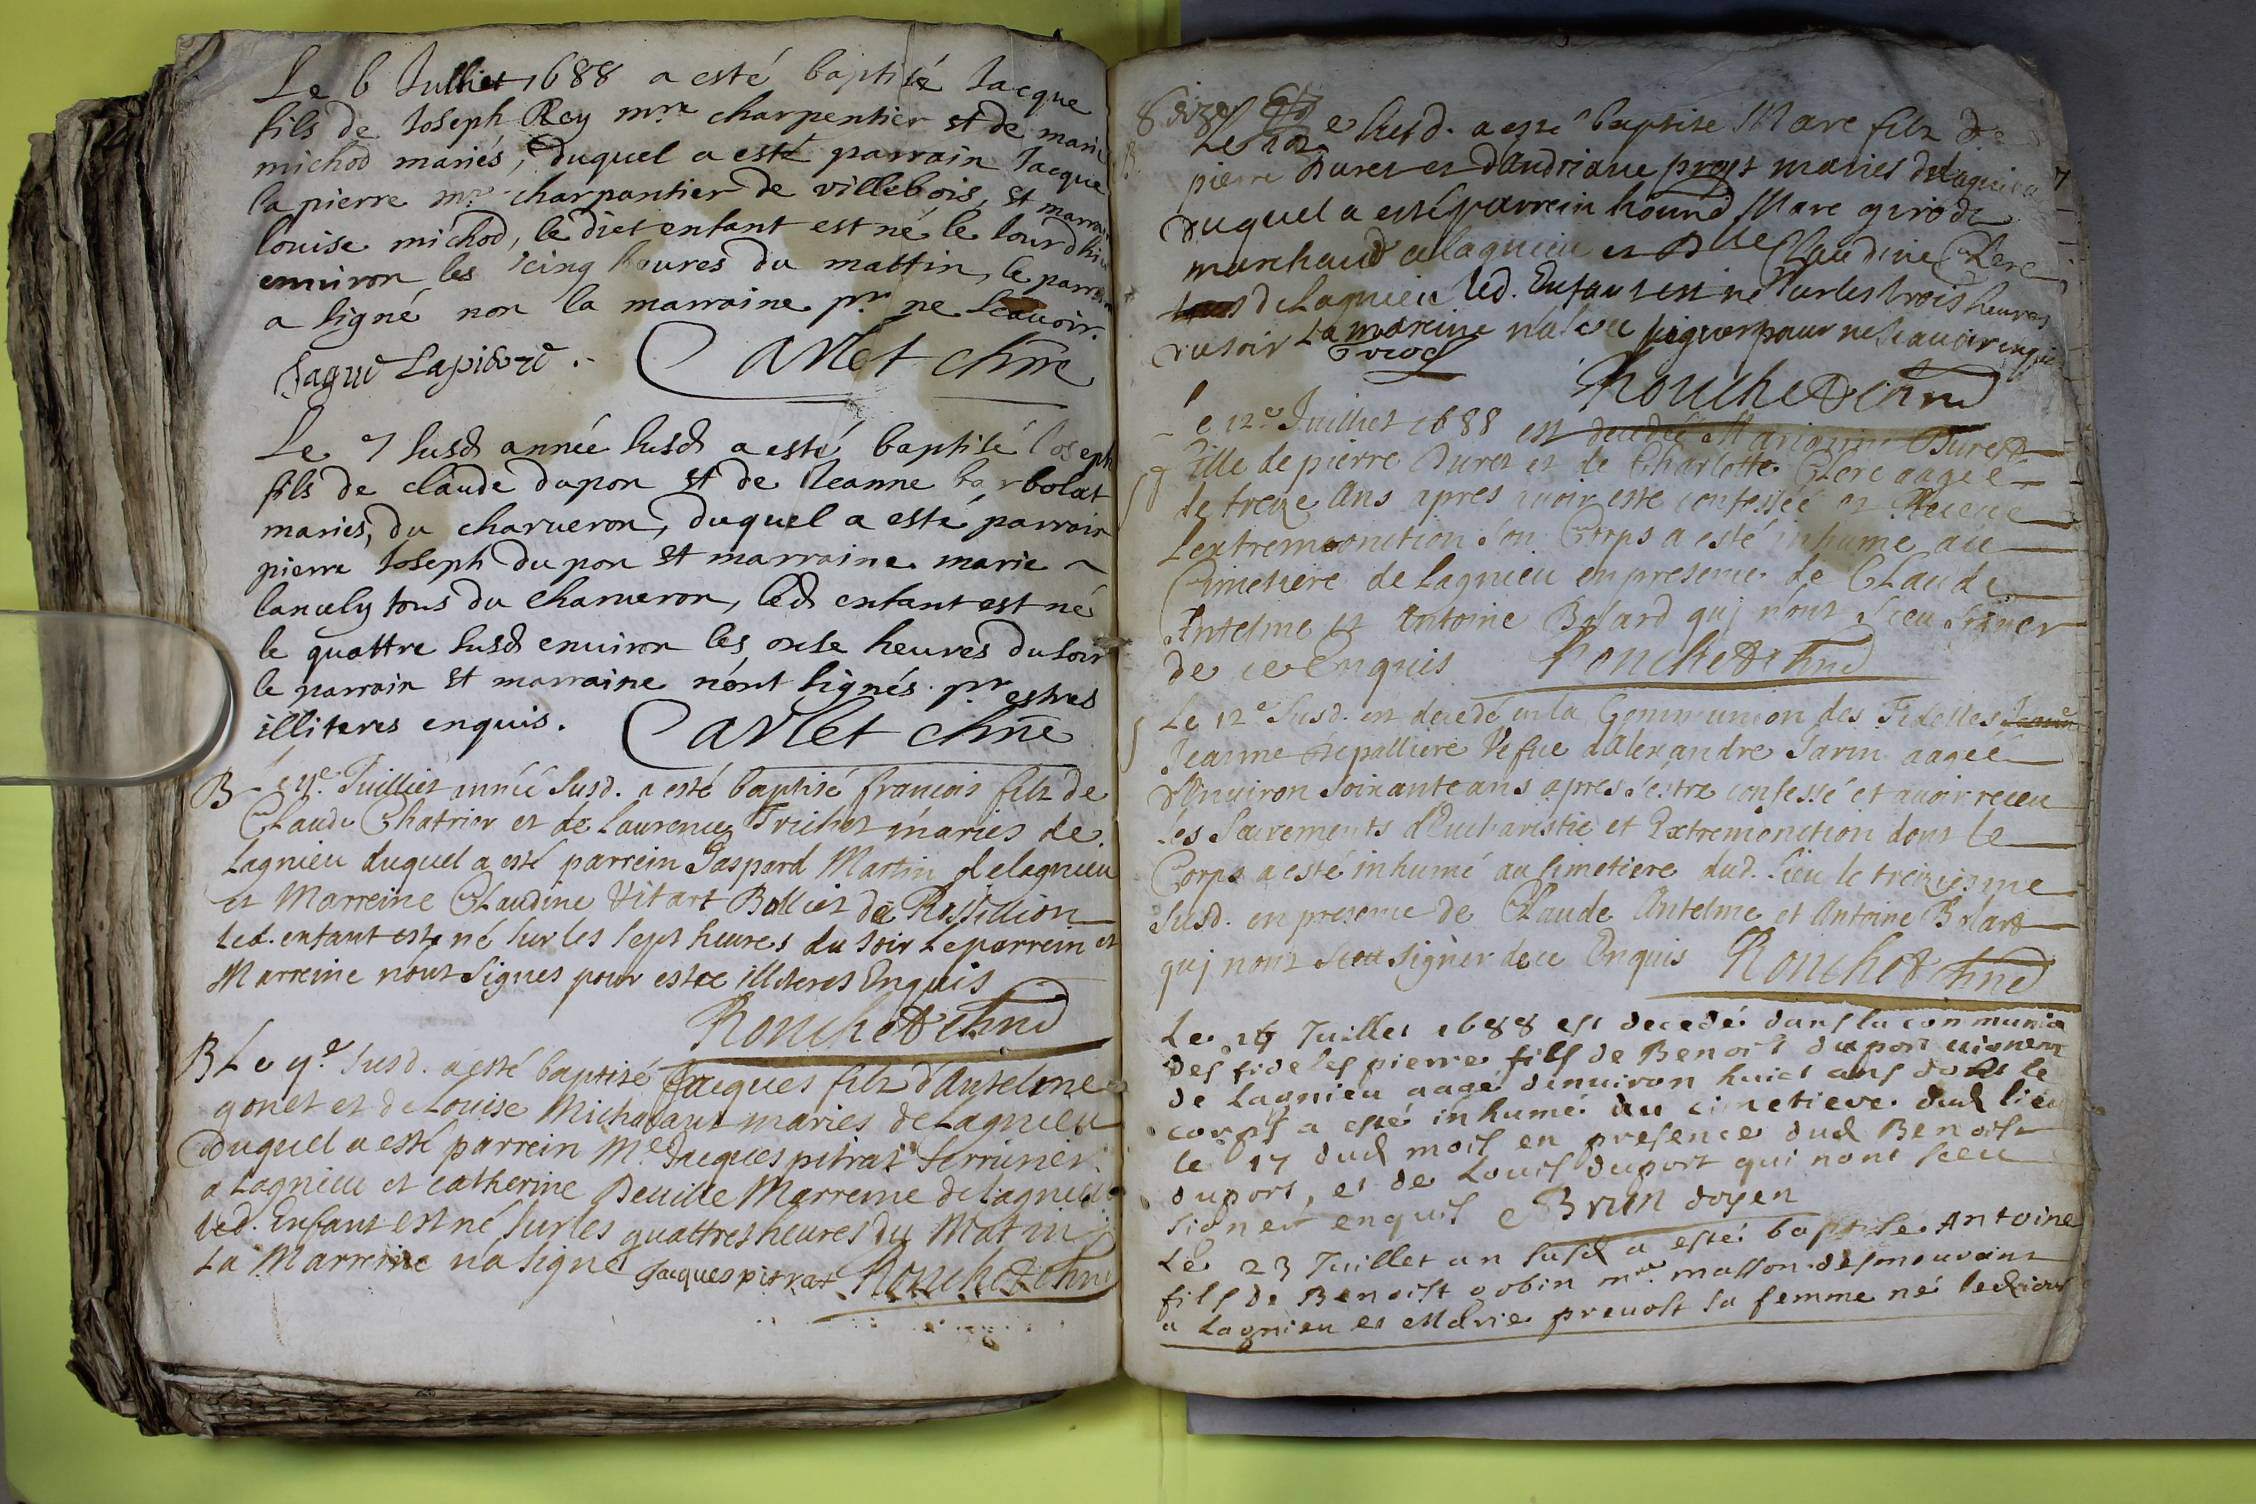 Le 6 Julliet 1688 a esté baptisé Jacque
fils de Joseph Rey mre charpentier et de marie
michod mariés, duquel a esté parrain Jacque
lapierre mre charpantier de villebois, et marraine
louise michod, le dict enfant est né le Jourd'hui
environ les cinq heures du mattin, le parrain
a signé non la marraine pr ne scavoir.
Jaque Lapierre. Carlet chne
Le 7 susd année susd a esté baptisé Joseph
fils de claude dupon et de Jeanne barbolat
mariés, du charveron, duquel a esté parrain
pierre Joseph dupon et marraine marie
lancely tous du charveron, led enfant est né
le quattre susd environ les onse heures du soir
le parrain et marraine n'ont signés pr estres
illiteres enquis. Carlet chne
B Le 9e Juilliet année susd. a esté baptisé francois filz de
Claude Chatrier et de Laurence Trichet mariés de
Lagnieu duquel a esté parrein Gaspard Martin de lagnieu
et Marreine Claudine Vitart Bolliet de Rossillion
led. enfant est né sur les sept heures du soir Le parrein et
Marreine n'ont Signes pour estre illiteres Enquis
Rouchet chne
B Le 9e susd. a esté baptisé Jacques filz d'Antelme
gonet et de Louise Michalaut mariés de Lagnieu
duquel a esté parrein Me Jacques pitrat serrurier
a Lagnieu et catherine Deville Marreine de lagnieu
led. Enfant est né sur les quattres heures du Matin
La Marreine n'a signé Jacques pitrat Rouchet chne
Seize
Le e susd. a esté baptisé Marc filz de
pierre Duret et d'andriane mariés de lagnieu
duquel a esté parrein honnd Marc girod
marchand a lagnieu et Dlle Claudine Clerc
de Lagnieu led. Enfant est né sur les trois heures
du soir La mareine n'a sceu signer pour ne scavoir enquis
Girod Rouchet chne
Le 12e Juilliet 1688 est decedée Duret
fille de pierre Duret et de Charlotte Clerc aagée
de treize ans apres avoir esté confessée et Receue
Lextremonction son Corps a esté inhumé au
Cimetiere de Lagnieu en presence de Claude
Antelme et Antoine Bolard qui n'ont sceu signer
de ce Enquis Rouchet chne
Le 12e susd. est decedé en la Communion des Fidelles
Jeanne Vefue d'Alexandre Jarin aagée
d'Environ soixante ans apres s'estre confessé et avoir receu
les Sacrements d'Eucharistie et Extremonction dont le
Corps a esté inhumé au Cimetiere dud. lieu le treizieme
susd. en presence de Claude Antelme et Antoine Bolard
qui n'ont sceu signer de ce Enquis Rouchet chne
Le 16 Juillet 1688 est decedé dans la communion
des fideles pierre fils de Benoist duport vigneron
de Lagnieu aagé denviron huict ans dont le
corps a esté inhumé au cimetiere dud lieu
le 17 dud mois en presence dud Benoist
duport, et de Louis duport qui n'ont sceu
signer enquis Brun doyen
Le 23 Juillet an susd a esté baptisé Antoine
fils de Benoist mre masson desmeurant
a Lagnieu et Marie prevost sa femme né led jour